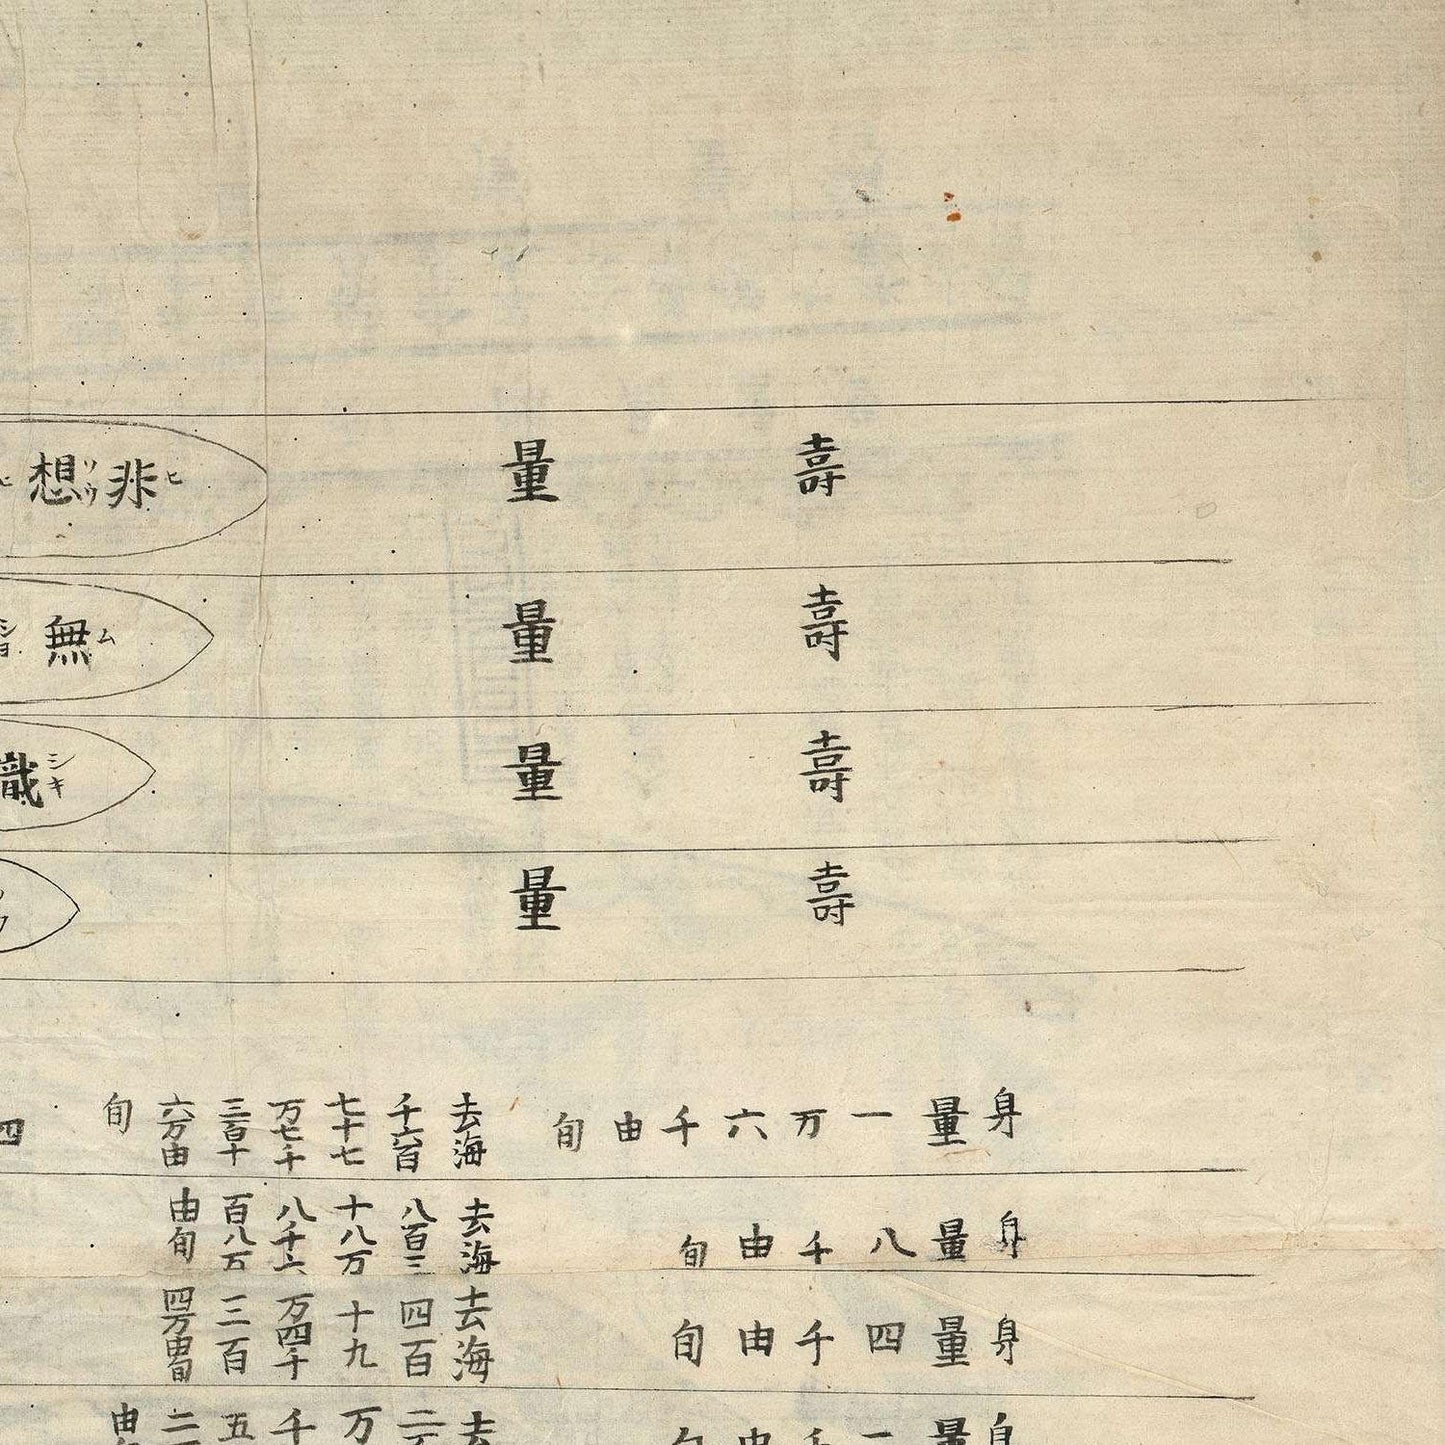 壽量非ヒ想ソウ
壽量無ムショ
壽量識シキ
壽量
身量一万六千由旬 去海千六百七十七万七千二百十六万由旬 四
身量八千由旬 去海八百三十八万八千六百八万由旬
身量四千由旬 去海四百十九万四千三百四万由旬
身量 千由 去 二 万千五二由